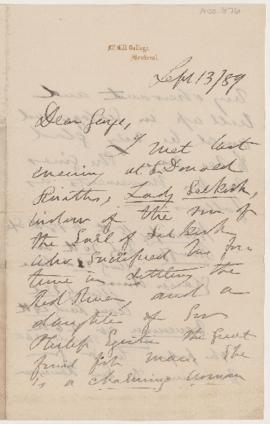 McGill College,
Montreal.
Sept 13/89
Dear George,
I met last
evening at Sr Donald
Smiths, Lady Selkirk,
widow of the son of
the Earl of Selkirk
who sacrificed his for
time in settling the
Red River, and a
daughter of Sir
Philip Egerton the great
fossil fish man. She
is a charming woman